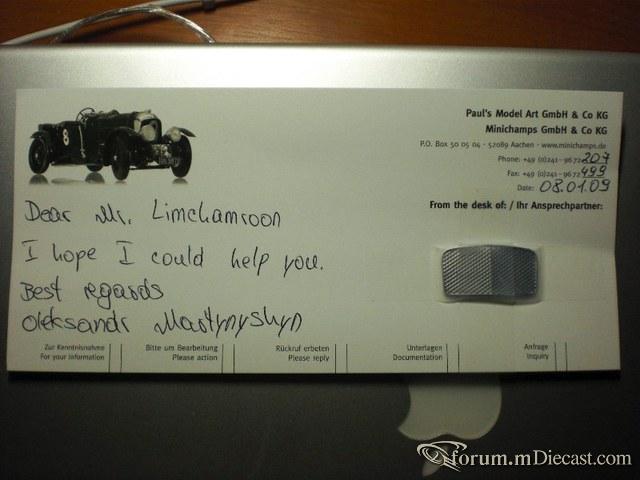 Paul's Model Art GmbH & Co KG
Minichamps GmbH & Co KG
P.O. Box 50 05 04 - 52089 Aachen - www.minichamps.de
Phone: +49 (0)241-9672 207
Fax: +49 (0)241-9672 499
Date: 08.01.09
From the desk of: / Ihr Ansprechpartner:
8
Dear Mr. Limchamroon
I hope I could help you.
Best regards
Oleksandr Martynyshyn
Zur Kenntnisnahme
For your information
Bitte um Bearbeitung
Please action
Rückruf erbeten
Please reply
Unterlagen
Documentation
Anfrage
Inquiry
forum.mDiecast.com